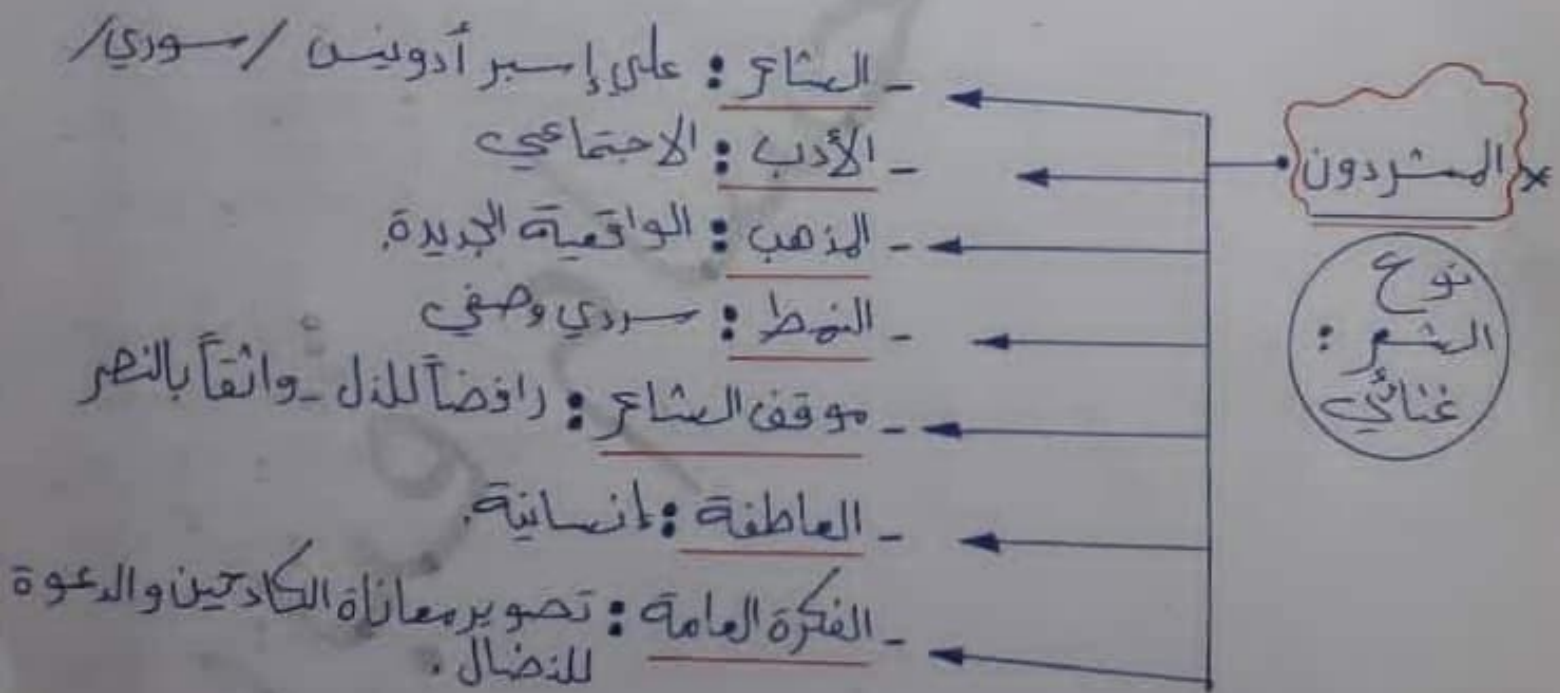 * المشردون
نوع
الشعر :
غنائي
- الشاعر : علي إسبر أدونيس /سوري/
- الأدب : الاجتماعي
- المذهب : الواقعية الجديدة.
- النمط : سردي وصفي
- موقف الشاعر : رافضاً للذل - واثقاً بالنصر
- العاطفة : إنسانية.
- الفكرة العامة : تصوير معاناة الكادحين والدعوة
للنضال .